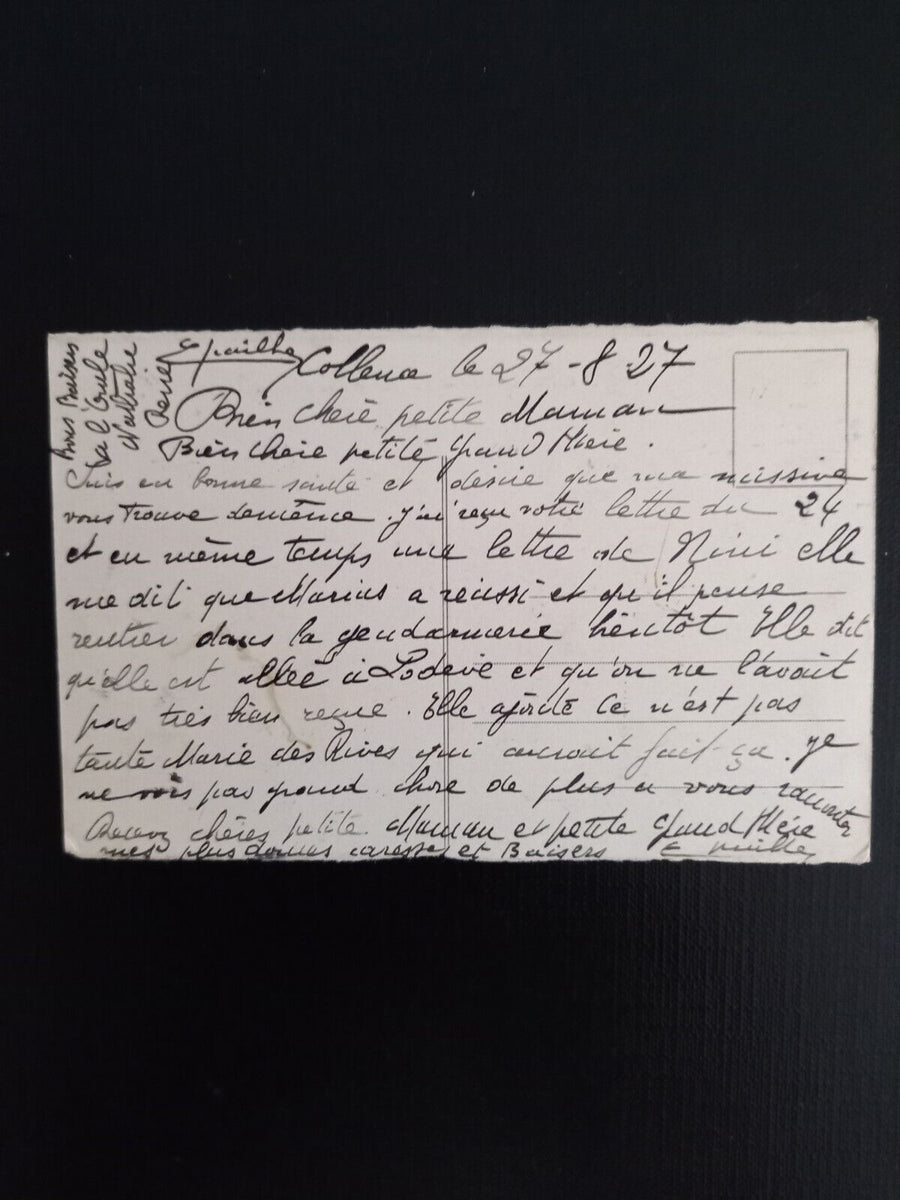 Bons Baisers
à l'Oncle
Nathalie
René
E pailhe
Collena le 27-8 27
Bien Cheie petite Maman
Bien Cheie petite Grand Mère.
Suis en bonne santé et désire que ma missive
vous trouve demême. j'ai reçu votre lettre du 24
et en même temps une lettre de Nini elle
me dit que Marius a réussi et qu'il pense
rentrer dans la gendarmerie bientôt Elle dit
qu'elle est allée à Lodève et qu'on ne l'avait
pas très bien reçue. Elle ajoute Ce n'est pas
tante Marie des Rives qui aurait fait ça. je
ne vois pas grand chose de plus a vous raconter
Recevez chères petite Maman et petite Grand Mère
mes plus douces caresses et Baisers